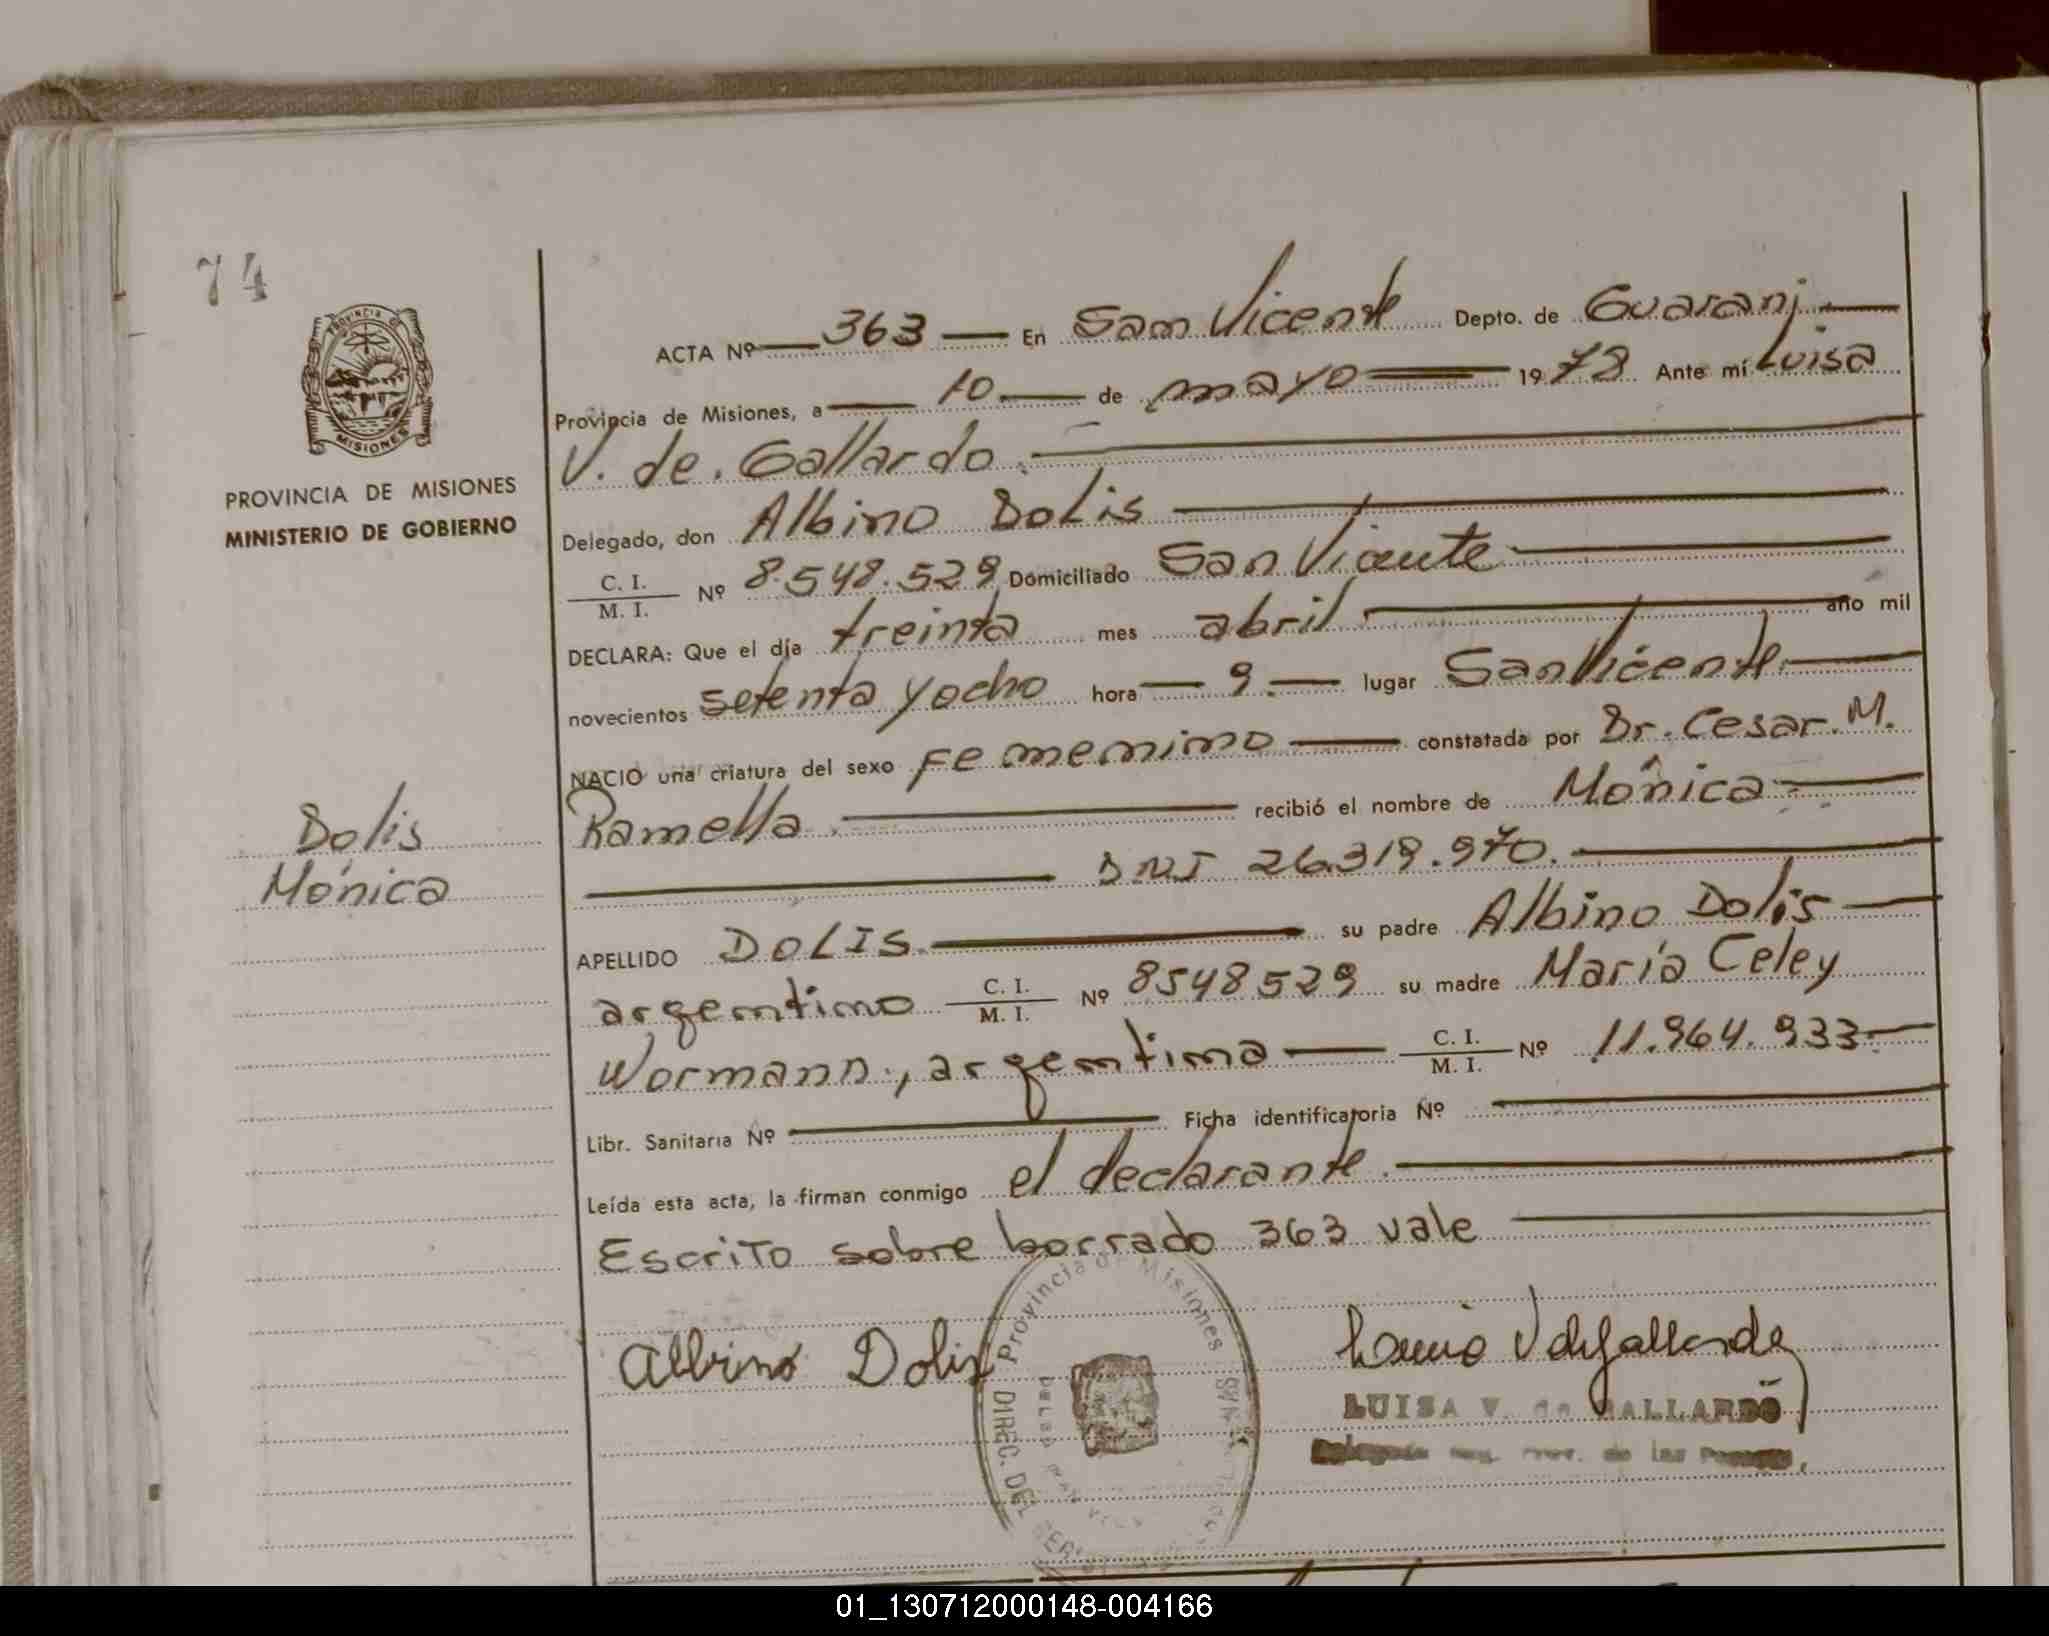 74
PROVINCIA DE
MISIONES
PROVINCIA DE MISIONES
MINISTERIO DE GOBIERNO
ACTA Nº 363 En San Vicente Depto. de Guaraní
Provincia de Misiones, a 10 de mayo 1978 Ante mí Luisa
V. de. Gallardo.
Delegado, don Albino Dolis
C. I.
M. I. Nº 8.548.529 Domiciliado San Vicente
DECLARA: Que el día treinta mes abril año mil
novecientos setenta y ocho hora 9. lugar San Vicente
NACIO una criatura del sexo Femenino constatada por Dr. Cesar. M.
Ramella. recibió el nombre de Mónica
D.N.I 26.319.970.
Dolis
Mónica
APELLIDO DOLIS. su padre Albino Dolis
argentino C. I.
M. I. Nº 8548529 su madre María Celey
Wormann., argentina C. I.
M. I. Nº 11.964.933.
Libr. Sanitaria Nº Ficha identificatoria Nº
Leída esta acta, la firman conmigo el declarante.
Escrito sobre borrado 363 vale
Albino Dolis
Provincia de Misiones
DIREC. DEL
LUISA V. de GALLARDO
01_130712000148-004166